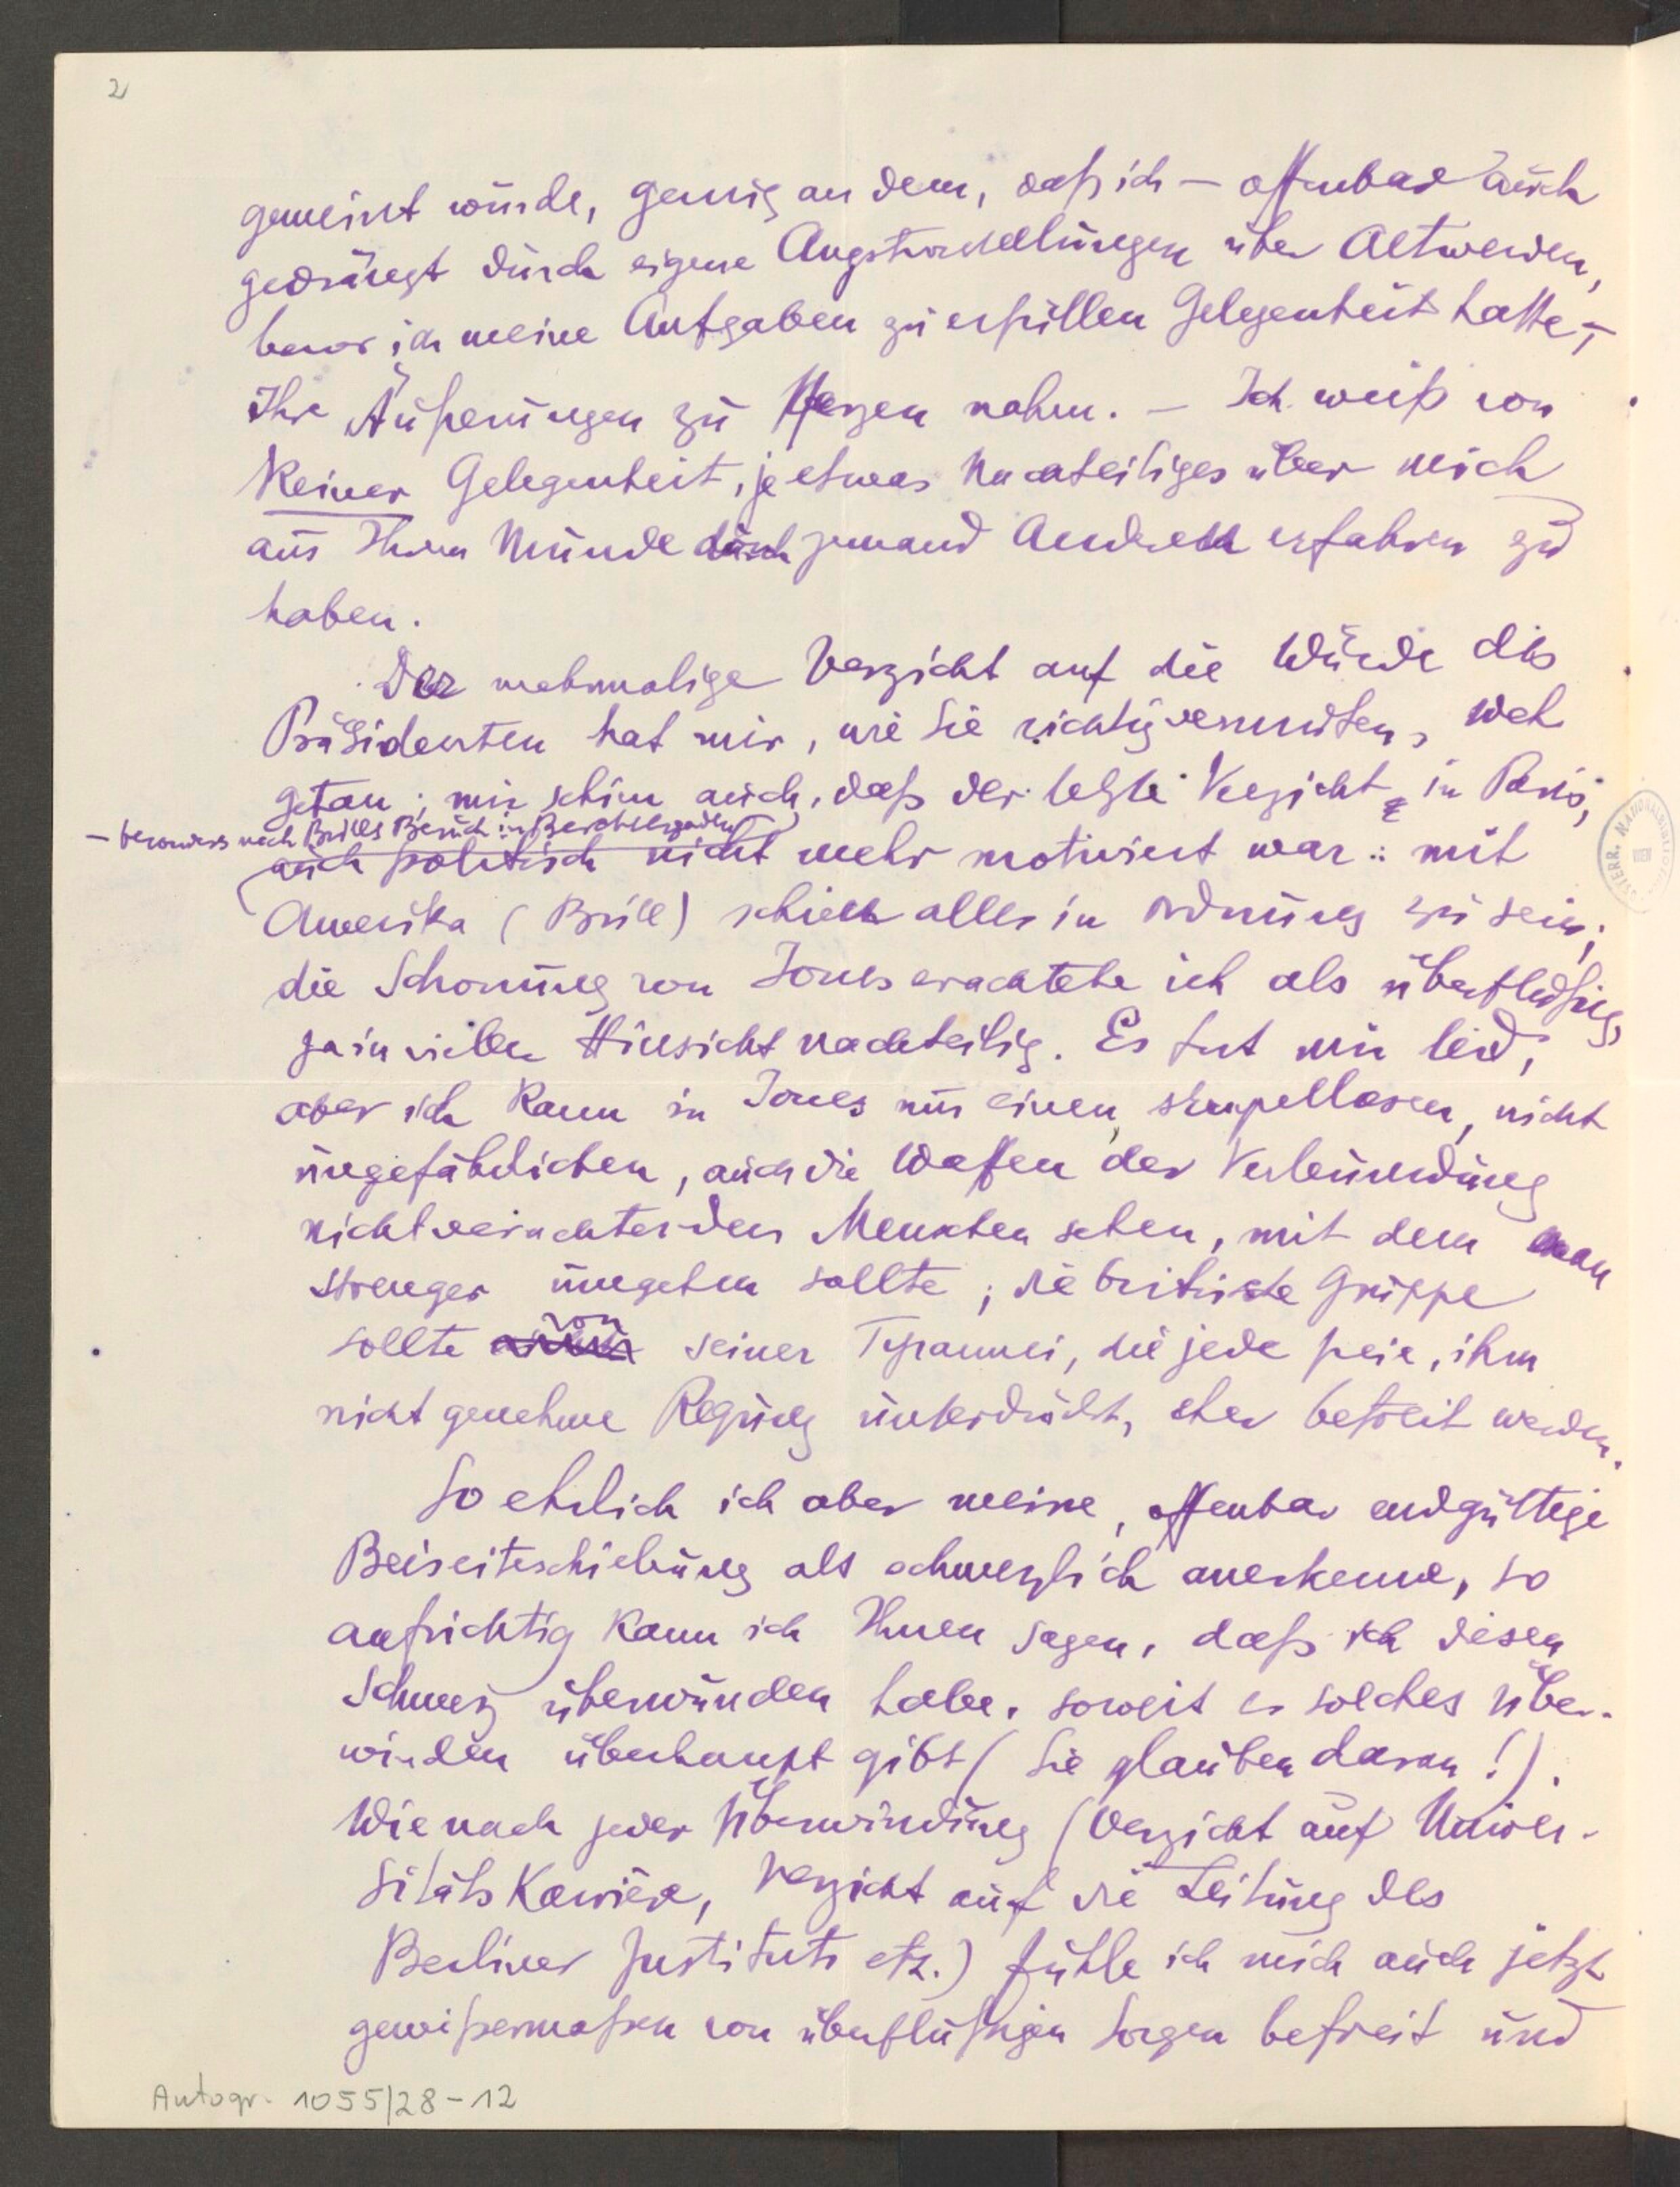 2
gemeint wurde, genug an dem, daß ich – offenbar auch
gedrängt durch eigene Angstvorstellungen über Altwerden,
bevor ich meine Aufgaben zu erfüllen Gelegenheit hatte –,
Ihre Äußerungen zu Herzen nahm. – Ich weiß von
keiner Gelegenheit, je etwas Nachteiliges über mich
aus Ihrem Munde durch jemand Anderen erfahren zu
haben.
Der mehrmalige Verzicht auf die Würde des
Präsidenten hat mir, wie Sie richtig vermuten, weh
getan; mir schien auch, daß der letzte Verzicht, in Paris,
– besonders nach Brills Besuch in Berchtesgaden –
auch politisch nicht mehr motiviert war: mit
Amerika (Brill) schien alles in Ordnung zu sein;
die Schonung von Jones erachtete ich als überflüßig,
ja in vieler Hinsicht nachteilig. Es tut mir leid,
aber ich kann in Jones nur einen skrupellosen, nicht
ungefährlichen, auch die Waffen der Verleumdung
nicht verachtenden Menschen sehen, mit dem man
strenger umgehen sollte; die britische Gruppe
sollte von seiner Tyrannei, die jede freie, ihm
nicht genehme Regung unterdrückt, eher befreit werden.
So ehrlich ich aber meine, offenbar endgültige
Beiseiteschiebung als schmerzlich anerkenne, so
aufrichtig kann ich Ihnen sagen, daß ich diesen
Schmerz überwunden habe, soweit es solches Über-
winden überhaupt gibt (Sie glauben daran!).
Wie nach jeder Überwindung (Verzicht auf Univer-
sitäts Karriere, Verzicht auf die Leitung des
Berliner Instituts etz.) fühle ich mich auch jetzt
gewißermaßen von überflüßigen Sorgen befreit und
Autogr. 1055/28-12
ÖSTERR. NATIONALBIBLIOTHEK